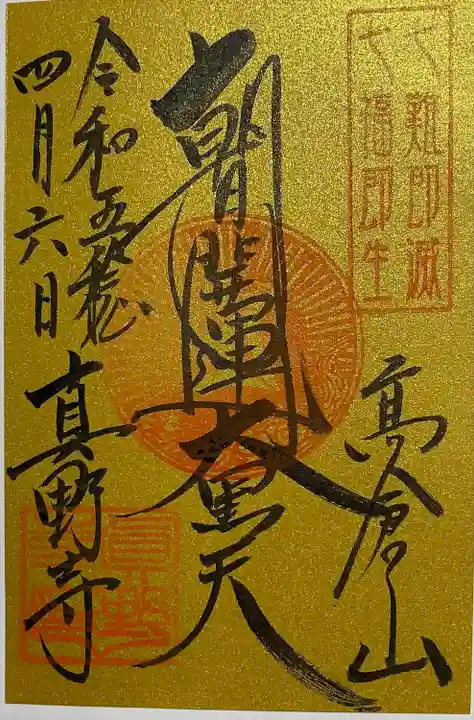 七難即滅
七福即生
高倉山
朝日開運大黒天
令和五
四月六日
真野寺